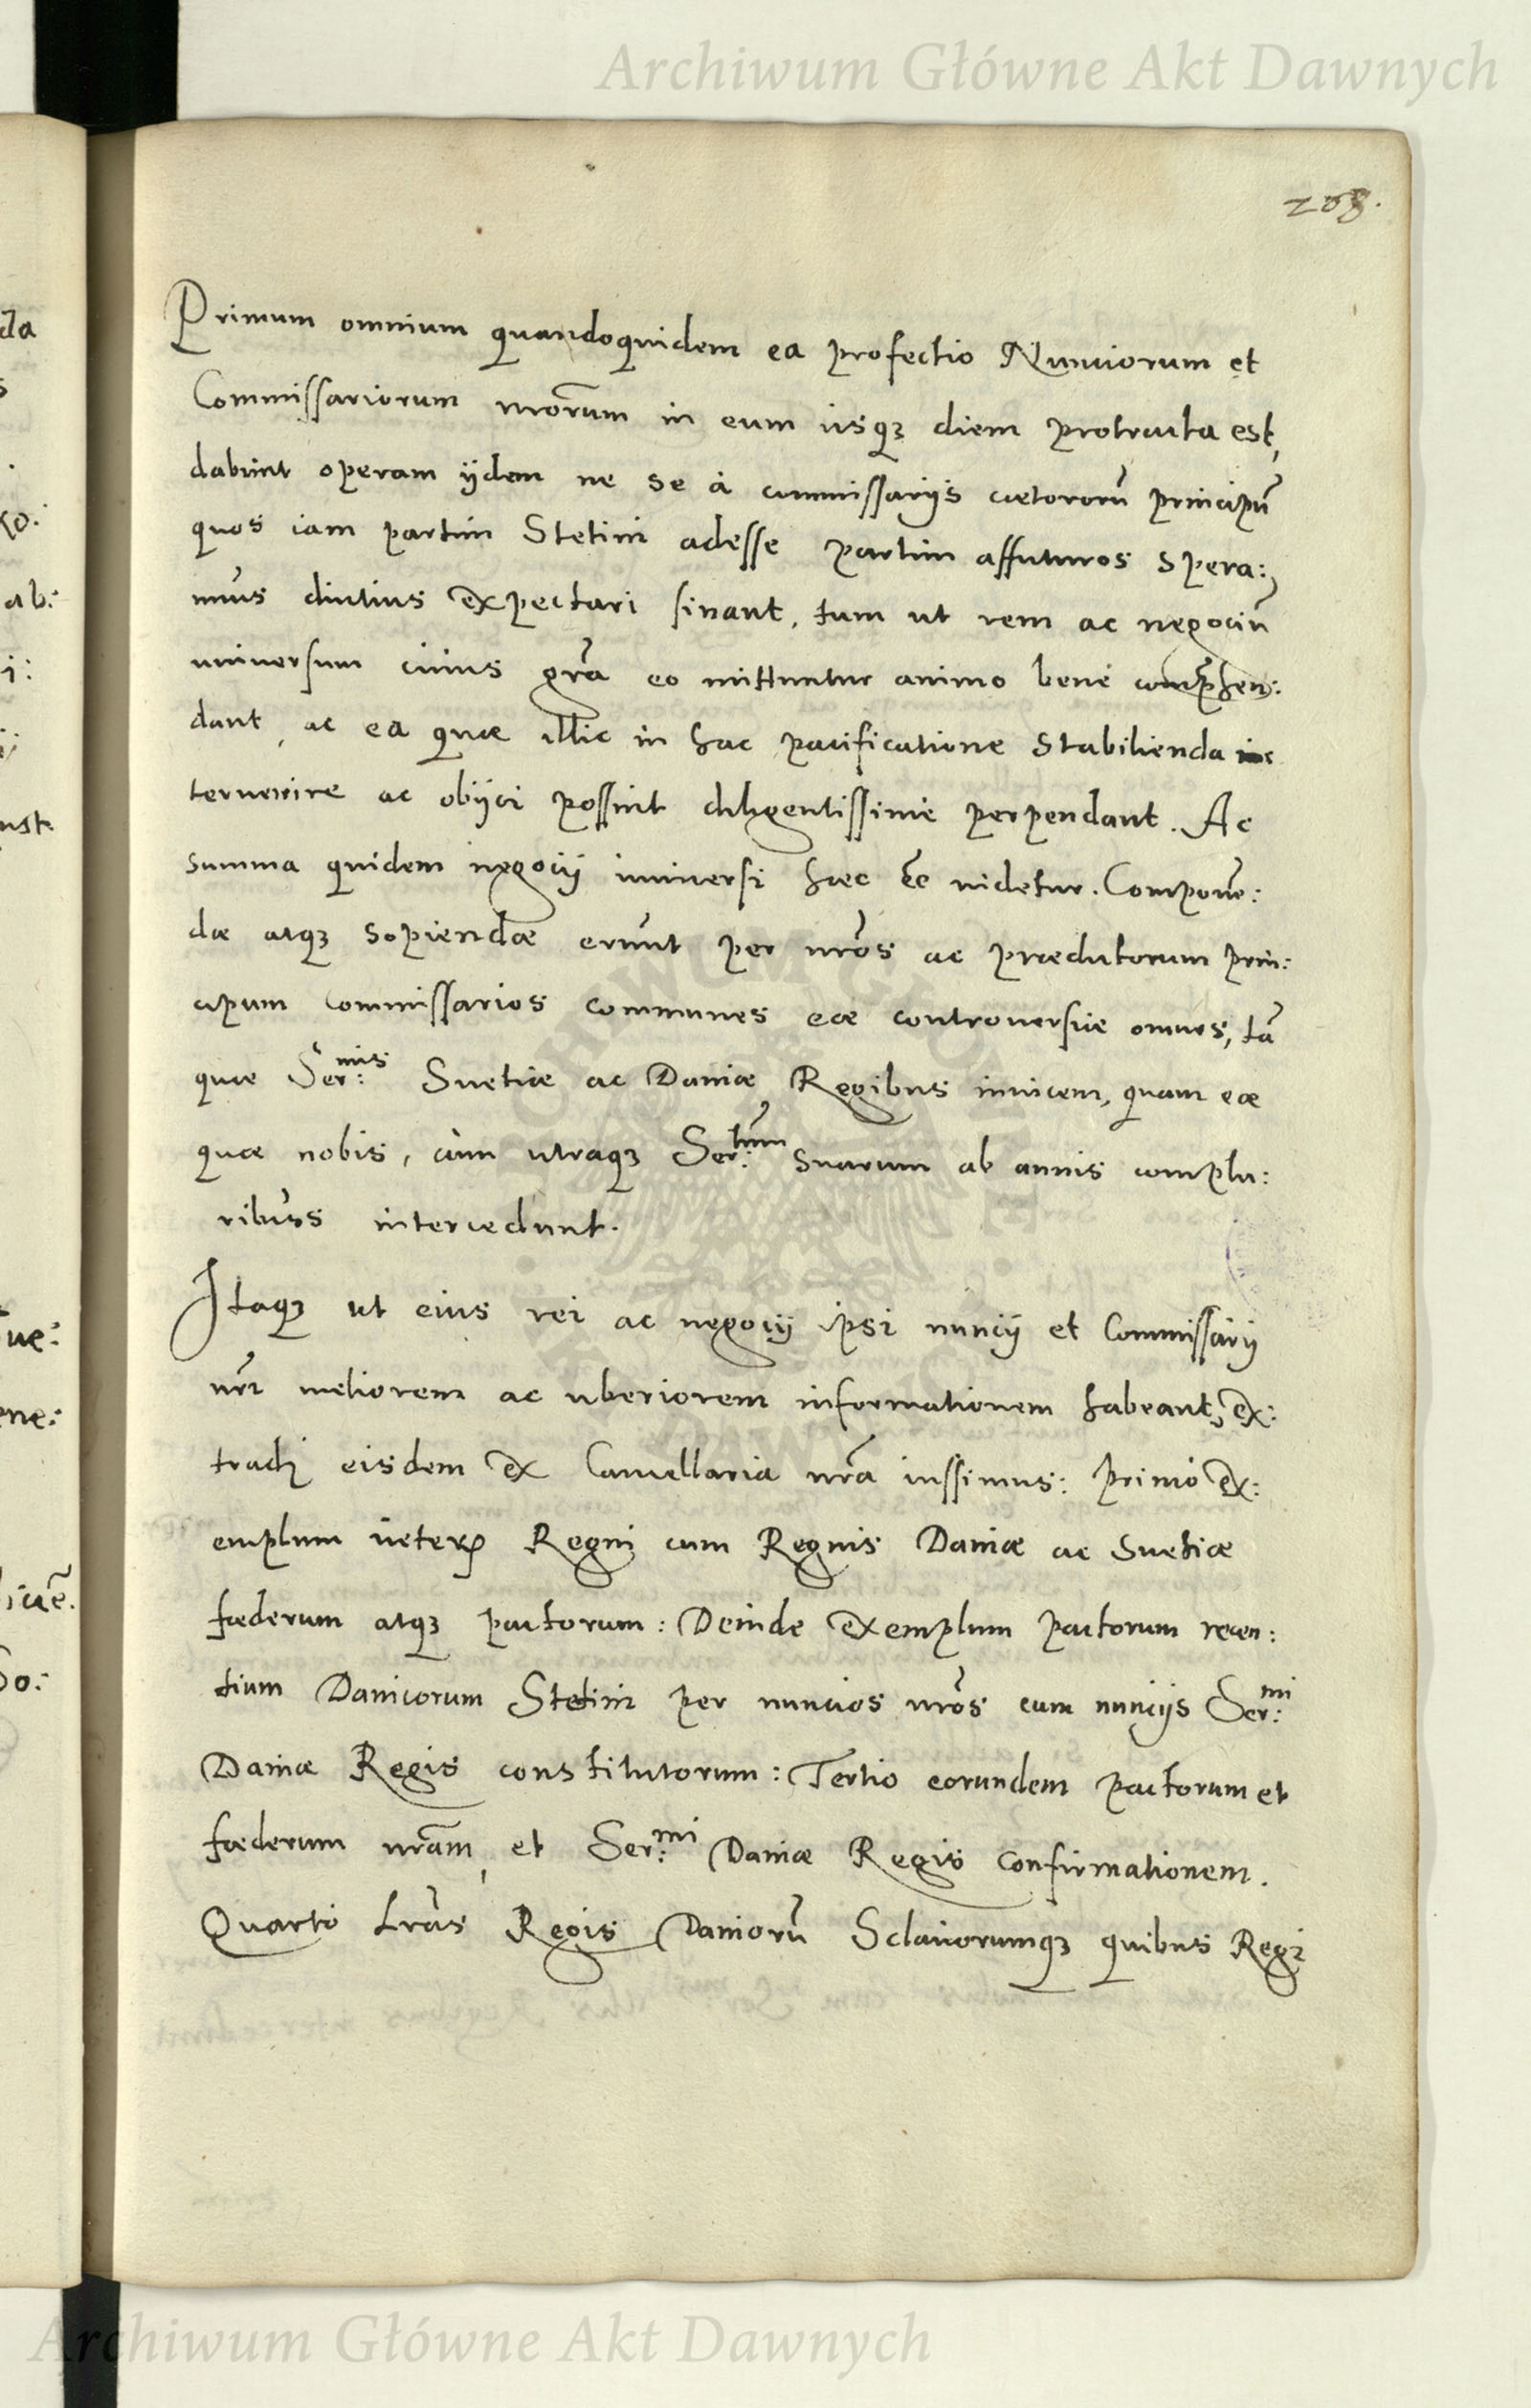 Archiwum Główne Akt Dawnych
208.
Primum omnium quandoquidem ea profectio Nunciorum et
Commissariorum nrorum in eum usq3 diem protracta est,
dabunt operam ijdem ne se à commissarijs caetororũ principũ
quos iam partim Stetini adesse partim affuturos spera:
mus diutius expectari sinant, tum ut rem ac negociũ
universum cuius gra eo mittuntur animo bene comphen:
dant, ac ea quae illic in hac pacificatione stabilienda in
tervenire ac obijci possint diligentissime perpendant. Ac
summa quidem negocij universi haec ee videtur. Componē:
dae atq3 sopiendae erunt per nros ac praedictorum prin:
cipum commissarios communes eae controversiae omnes, tã
quae Ser:mis Suetiae ac Daniae Regibus invicem, quam eae
quae nobis, cum utraq3 Ser:tum suarum ab annis complu:
ribus intercedunt.
Itaq3 ut eius rei ac negocij ipsi nuncij et Commissarij
nri meliorem ac uberiorem informationem habeant, ex:
tradi eisdem ex Cancellaria nra iussimus: primo ex:
emplum veterꝝ Regni cum Regnis Daniae ac Suetiae
foederum atq3 pactorum: Deinde exemplum pactorum recen:
tium Danicorum Stetini per nuncios nros cum nuncijs Ser:mi
Daniae Regis constitutorum: Tertio eorundem pactorum et
foederum nram, et Ser:mi Daniae Regis confirmationem.
Quarto Lras Regis Daniorũ Sclavorumq3 quibus Regi
Archiwum Główne Akt Dawnych